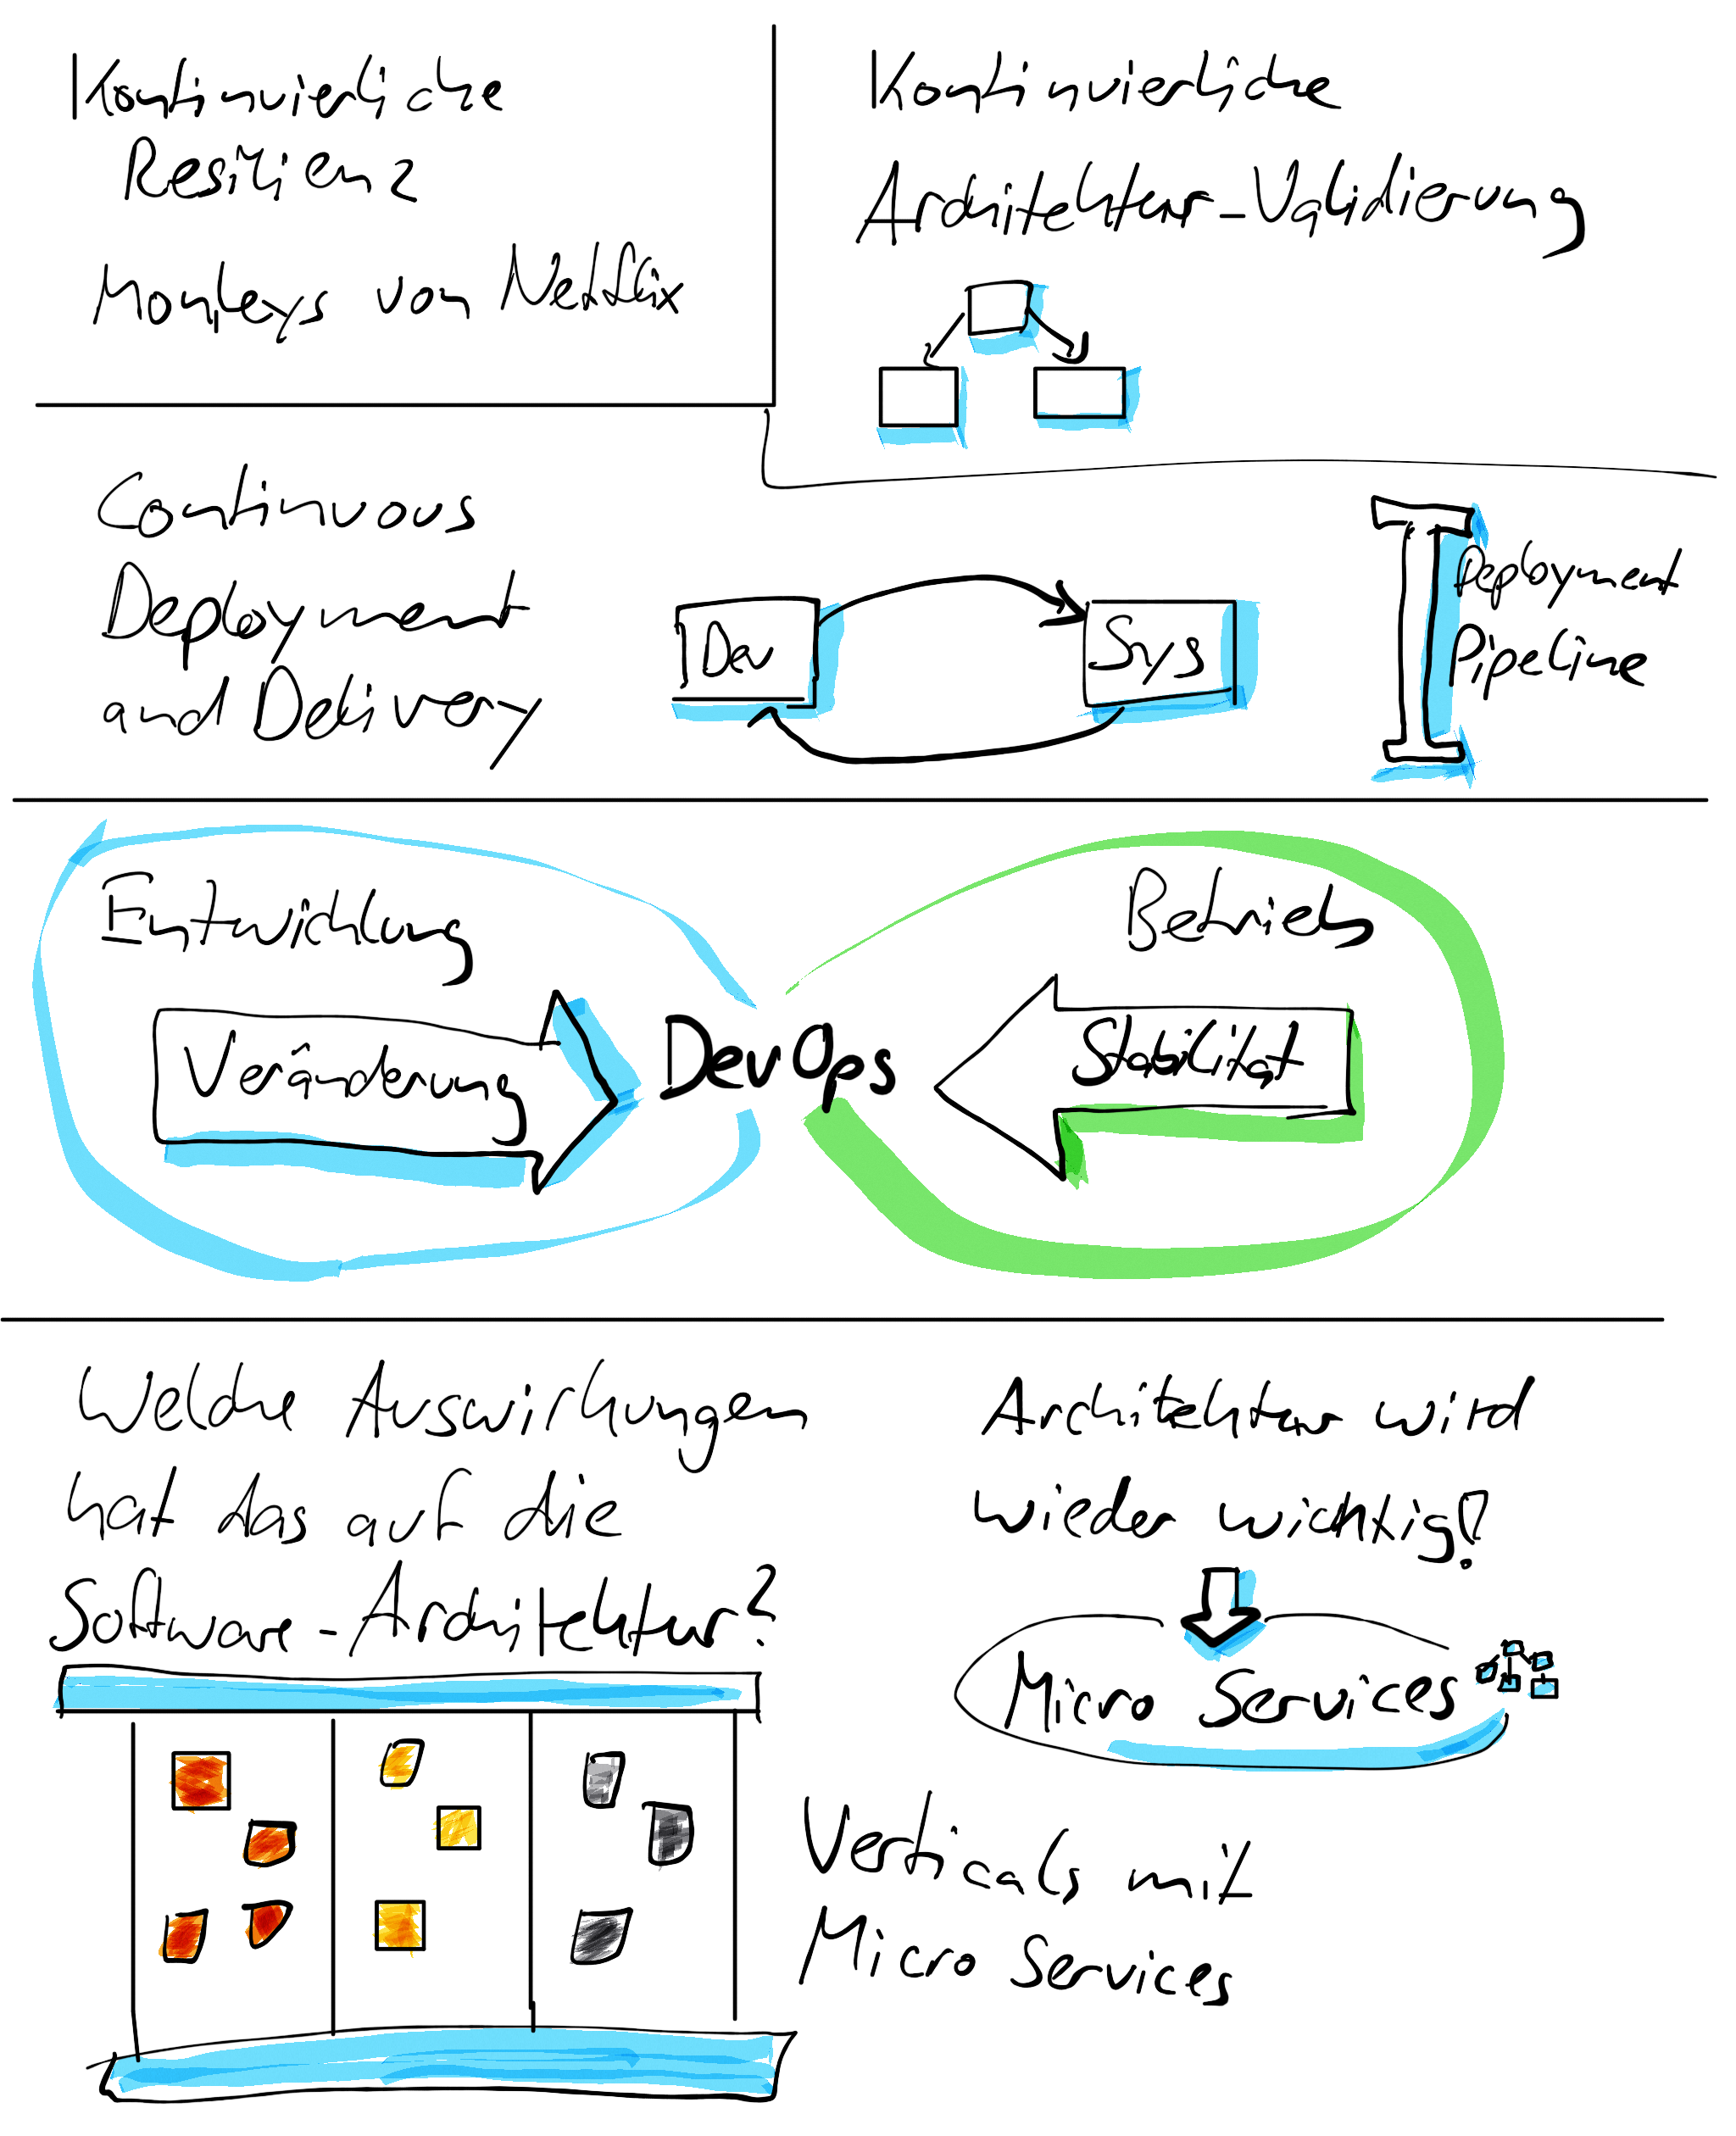 Kontinuierliche
Resilienz
Monkeys von Netflix
Kontinuierliche
Architektur-Validierung
Continuous
Deployment
and Delivery
Dev
Sys
Deployment
Pipeline
Entwicklung
Veränderung
DevOps
Betrieb
Stabilität
Welche Auswirkungen
hat das auf die
Software-Architektur?
Architektur wird
wieder wichtig!
Micro Services
Verticals mit
Micro Services